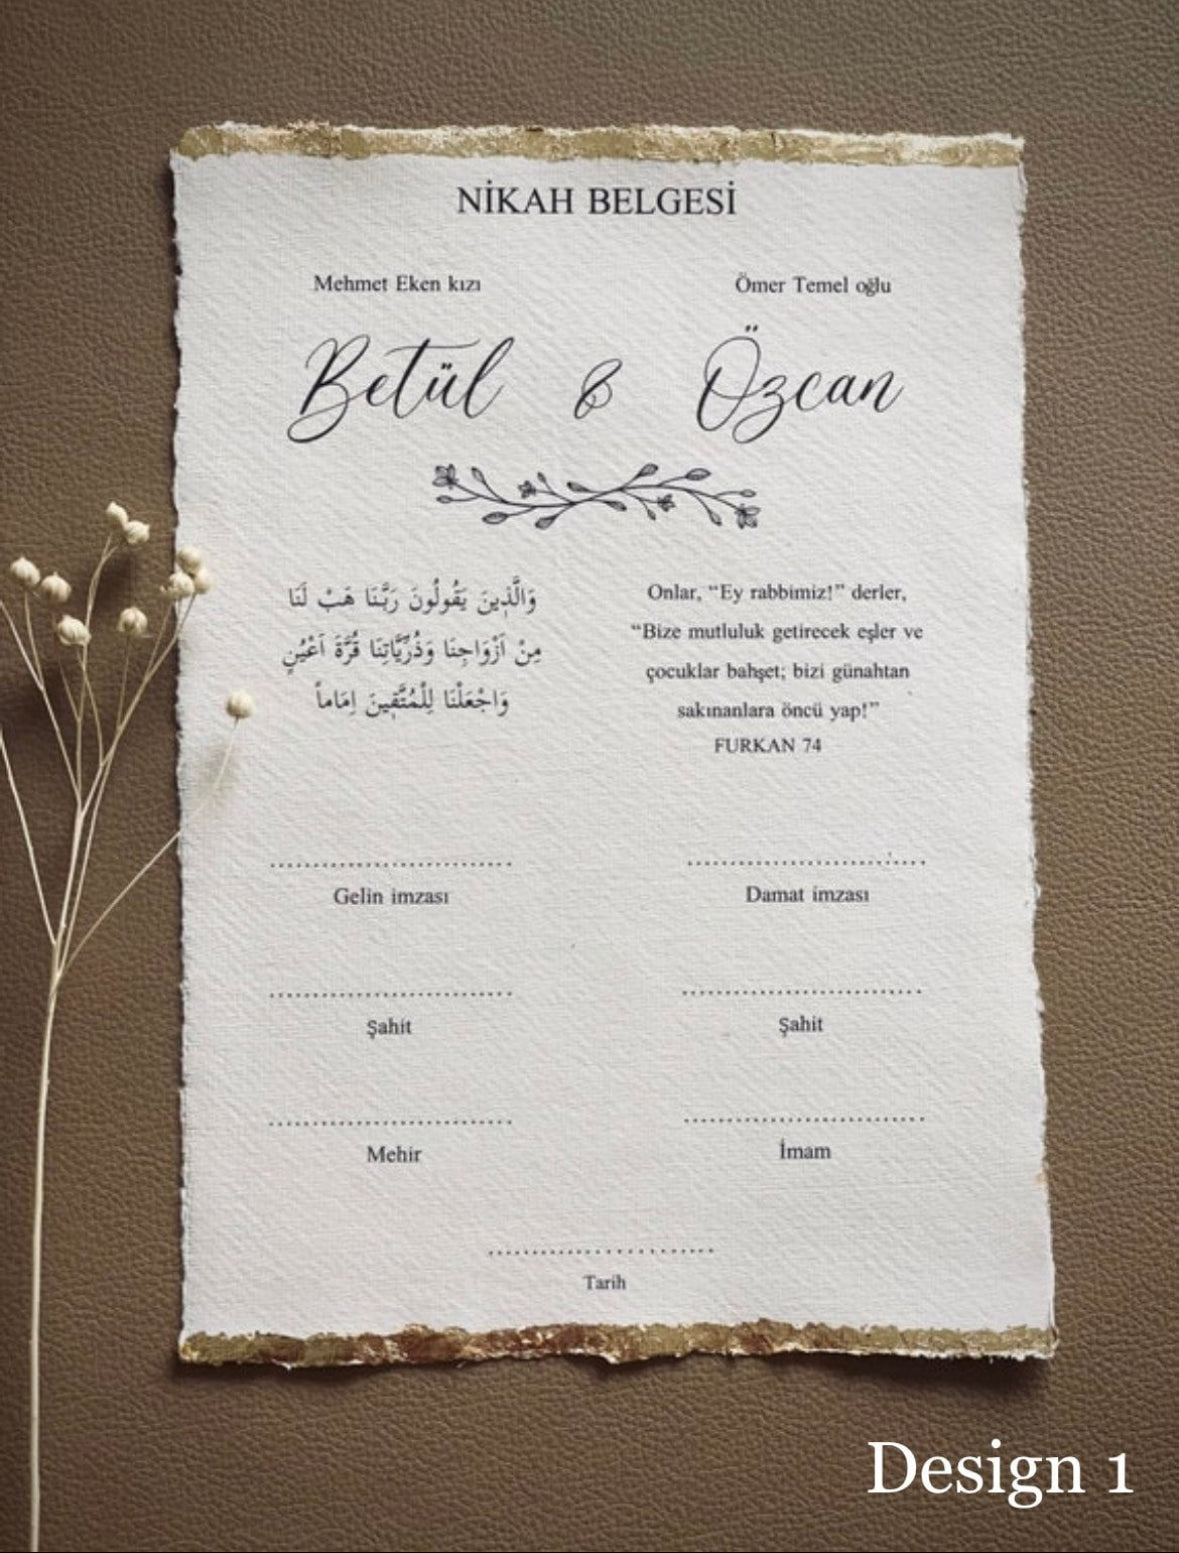 NİKAH BELGESİ
Mehmet Eken kızı
Ömer Temel oğlu
Betül & Özcan
وَالَّذ۪ينَ يَقُولُونَ رَبَّنَا هَبْ لَنَا
مِنْ اَزْوَاجِنَا وَذُرِّيَّاتِنَا قُرَّةَ اَعْيُنٍ
وَاجْعَلْنَا لِلْمُتَّق۪ينَ اِمَاماً
Onlar, “Ey rabbimiz!” derler,
“Bize mutluluk getirecek eşler ve
çocuklar bahşet; bizi günahtan
sakınanlara öncü yap!”
FURKAN 74
Gelin imzası
Damat imzası
Şahit
Şahit
Mehir
İmam
Tarih
Design 1